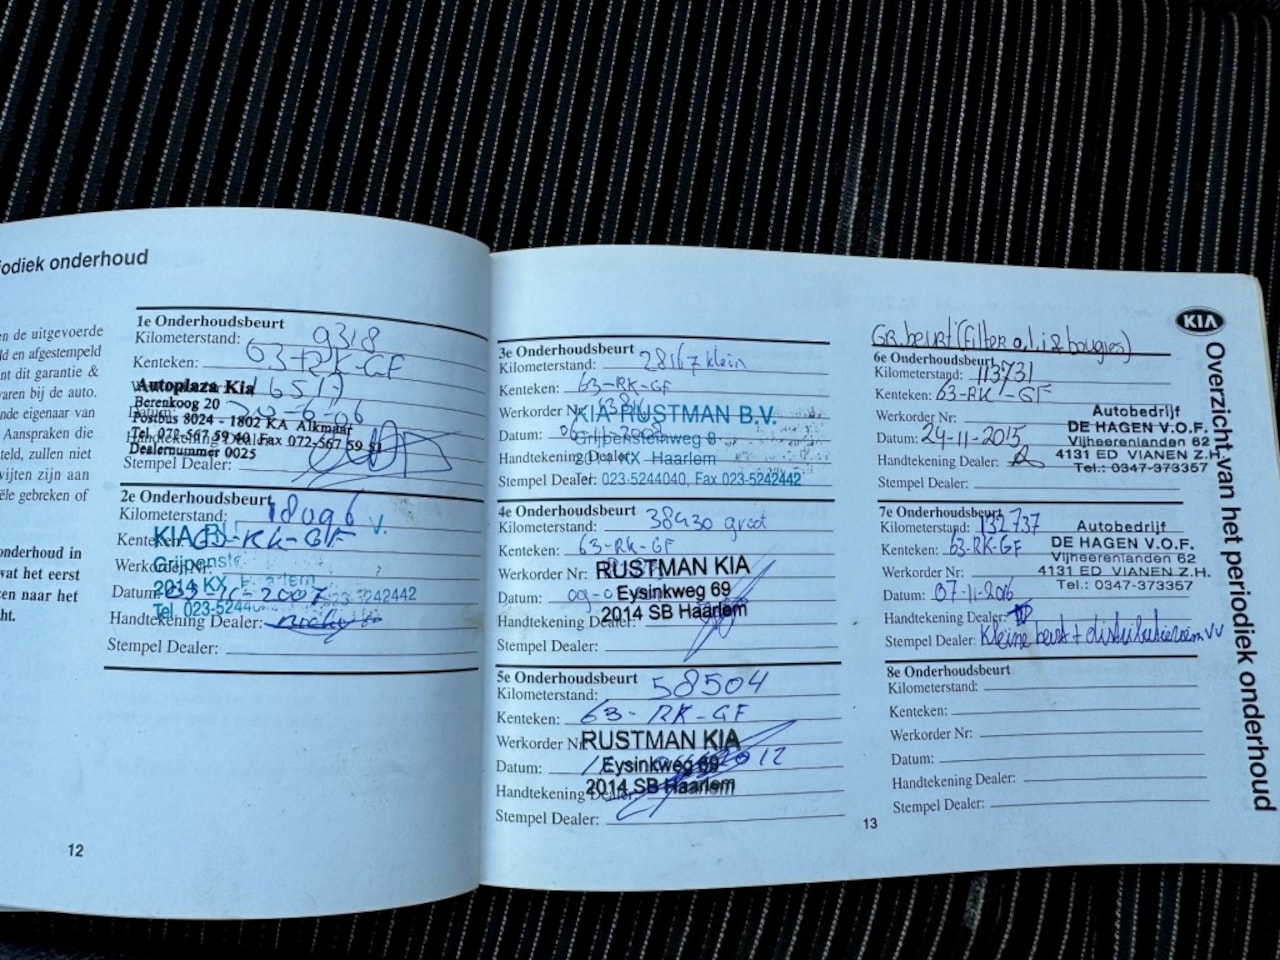 iodiek onderhoud
en de uitgevoerde
ld en afgestempeld
nt dit garantie &
varen bij de auto.
nde eigenaar van
Aanspraken die
teld, zullen niet
wijten zijn aan
ële gebreken of
onderhoud in
wat het eerst
en naar het
cht.
1e Onderhoudsbeurt
Kilometerstand: 9318
Kenteken: 63-RK-GF
Autoplaza Kia
Berenkoog 20
Postbus 8024 - 1802 KA Alkmaar
Tel. 072-567 59 40 Fax 072-567 59 41
Dealernummer 0025
Stempel Dealer:
2e Onderhoudsbeurt
Kilometerstand: 18096
Kenteken: 63-RK-GF
Werkorder Nr:
Datum: 2007
Tel. 023-5244 023-5242442
Handtekening Dealer:
Stempel Dealer:
12
3e Onderhoudsbeurt
Kilometerstand: 28167 klein
Kenteken: 63-RK-GF
Werkorder Nr:
KIA RUSTMAN B.V.
Datum: 06-11-2008
Grijpensteinweg 9
Handtekening Dealer:
2014 KX Haarlem
Stempel Dealer: 023-5244040, Fax 023-5242442
4e Onderhoudsbeurt
Kilometerstand: 38430 groot
Kenteken: 63-RK-GF
Werkorder Nr: RUSTMAN KIA
Datum: Eysinkweg 69
2014 SB Haarlem
Handtekening Dealer:
Stempel Dealer:
5e Onderhoudsbeurt
Kilometerstand: 58504
Kenteken: 63-RK-GF
Werkorder Nr: RUSTMAN KIA
Datum: Eysinkweg 69 2012
2014 SB Haarlem
Handtekening Dealer:
Stempel Dealer:
Gr.beurt (filter olie & bougies)
6e Onderhoudsbeurt
Kilometerstand: 113731
Kenteken: 63-RK-GF
Werkorder Nr:
Datum: 24-11-2015
Handtekening Dealer:
Stempel Dealer:
Autobedrijf
DE HAGEN V.O.F.
Vijheerenlanden 62
4131 ED VIANEN Z.H.
Tel.: 0347-373357
7e Onderhoudsbeurt
Kilometerstand: 132737
Kenteken: 63-RK-GF
Werkorder Nr:
Datum: 07-11-2016
Handtekening Dealer:
Stempel Dealer: Kleine beurt + distributieriem VV
Autobedrijf
DE HAGEN V.O.F.
Vijheerenlanden 62
4131 ED VIANEN Z.H.
Tel.: 0347-373357
8e Onderhoudsbeurt
Kilometerstand:
Kenteken:
Werkorder Nr:
Datum:
Handtekening Dealer:
Stempel Dealer:
13
KIA
Overzicht van het periodiek onderhoud